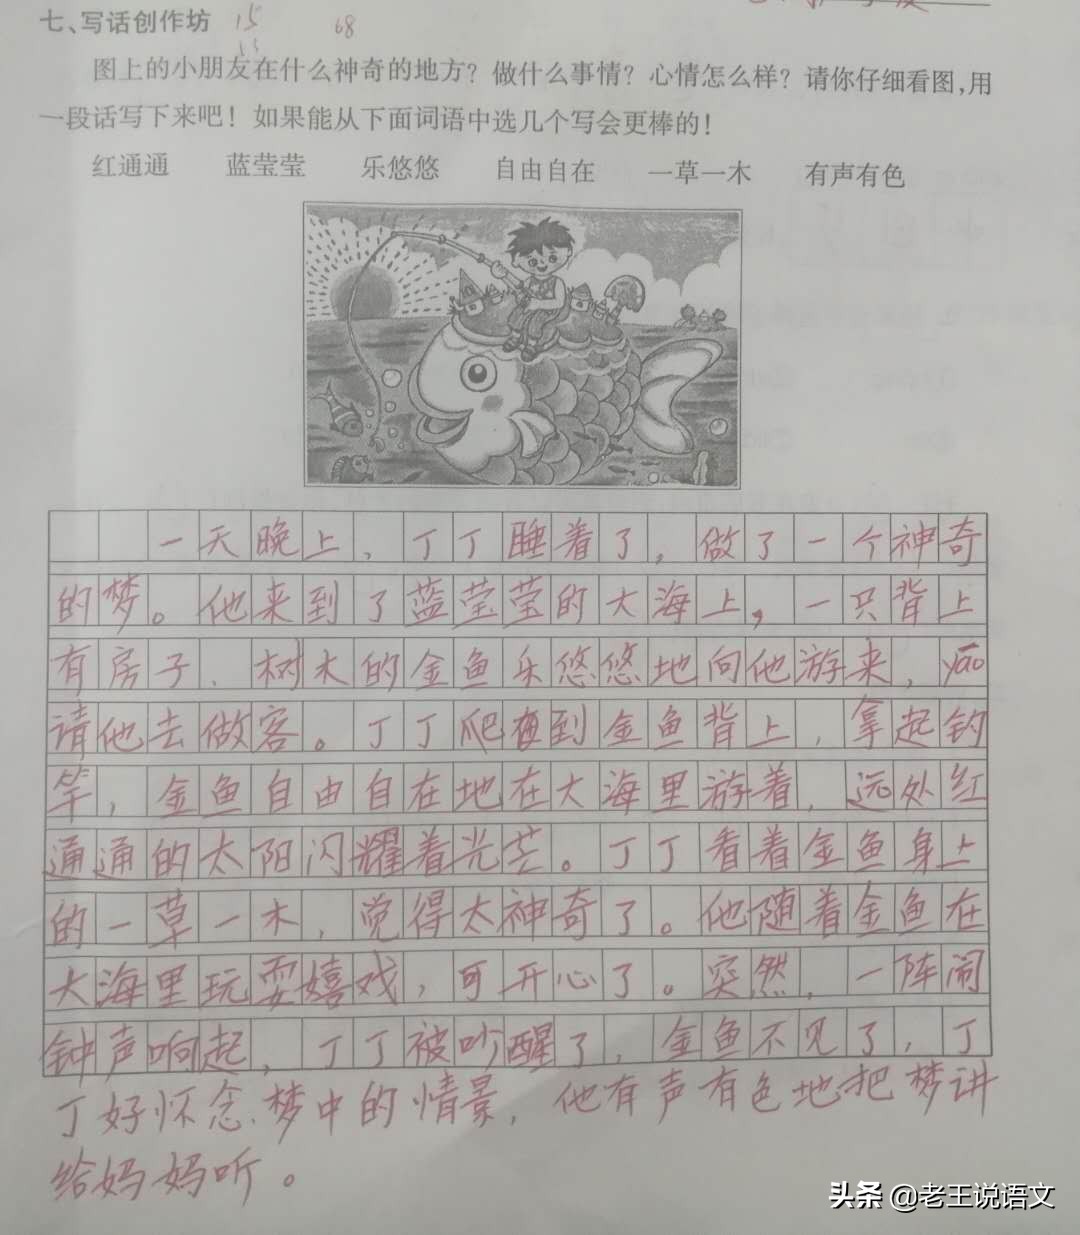 七、写话创作坊 15 68
13
图上的小朋友在什么神奇的地方？做什么事情？心情怎么样？请你仔细看图,用
一段话写下来吧！如果能从下面词语中选几个写会更棒的！
红通通 蓝莹莹 乐悠悠 自由自在 一草一木 有声有色
一天晚上，丁丁睡着了，做了一个神奇
的梦。他来到了蓝莹莹的大海上，一只背上
有房子、树木的金鱼乐悠悠地向他游来，yāo
请他去做客。丁丁爬到金鱼背上，拿起钓
竿，金鱼自由自在地在大海里游着，远处红
通通的太阳闪耀着光芒。丁丁看着金鱼身上
的一草一木，觉得太神奇了。他随着金鱼在
大海里玩耍嬉戏，可开心了。突然，一阵闹
钟声响起，丁丁被吵醒了，金鱼不见了，丁
丁好怀念梦中的情景，他有声有色地把梦讲
给妈妈听。
头条 @老王说语文